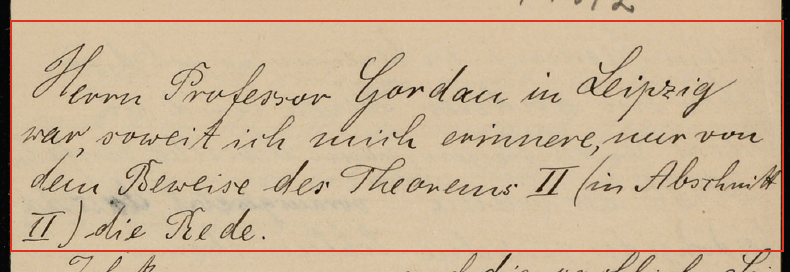 Herrn Professor Gordan in Leipzig
war, soweit ich mich erinnere, nur von
dem Beweise des Theorems II (in Abschnitt
II) die Rede.